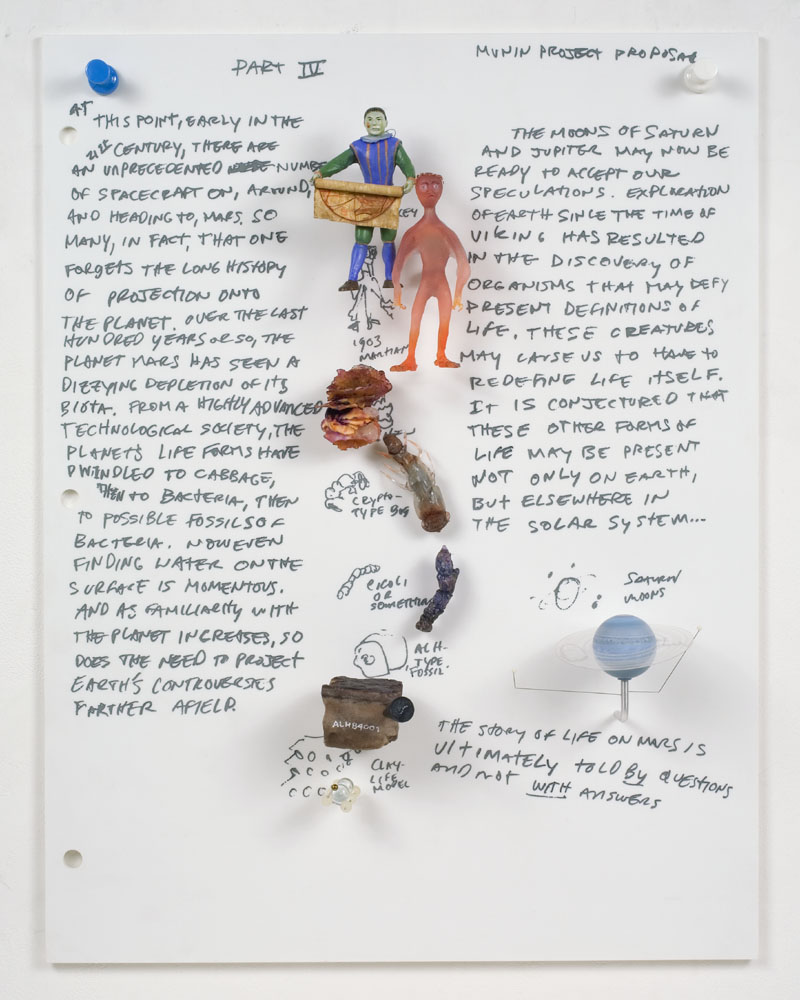 PART IV
MUNIN PROJECT PROPOSAL
AT THIS POINT, EARLY IN THE
21ST CENTURY, THERE ARE
AN UNPRECEDENTED NUMBE
OF SPACECRAFT ON, AROUND,
AND HEADING TO, MARS. SO
MANY, IN FACT, THAT ONE
FORGETS THE LONG HISTORY
OF PROJECTION ONTO
THE PLANET. OVER THE LAST
HUNDRED YEARS OR SO, THE
PLANET MARS HAS SEEN A
DIZZYING DEPLETION OF ITS
BIOTA. FROM A HIGHLY ADVANCED
TECHNOLOGICAL SOCIETY, THE
PLANET'S LIFE FORMS HAVE
DWINDLED TO CABBAGE,
THEN TO BACTERIA, THEN
TO POSSIBLE FOSSILS OF
BACTERIA. HOWEVER
FINDING WATER ON THE
SURFACE IS MOMENTOUS.
AND AS FAMILIARITY WITH
THE PLANET INCREASES, SO
DOES THE NEED TO PROJECT
EARTH'S CONTROVERSIES
FARTHER AFIELD.
1903
MARTIAN
CRYPTO-
TYPE BUG
ECOLI
OR
SOMETHING
ALH-
TYPE
FOSSIL.
ALH84001
CLAY-
LIFE
MODEL
THE MOONS OF SATURN
AND JUPITER MAY NOW BE
READY TO ACCEPT OUR
SPECULATIONS. EXPLORATION
OF EARTH SINCE THE TIME OF
VIKING HAS RESULTED
IN THE DISCOVERY OF
ORGANISMS THAT MAY DEFY
PRESENT DEFINITIONS OF
LIFE. THESE CREATURES
MAY CAUSE US TO HAVE TO
REDEFINE LIFE ITSELF.
IT IS CONJECTURED THAT
THESE OTHER FORMS OF
LIFE MAY BE PRESENT
NOT ONLY ON EARTH,
BUT ELSEWHERE IN
THE SOLAR SYSTEM...
SATURN
MOONS
THE STORY OF LIFE ON MARS IS
ULTIMATELY TOLD BY QUESTIONS
AND NOT WITH ANSWERS